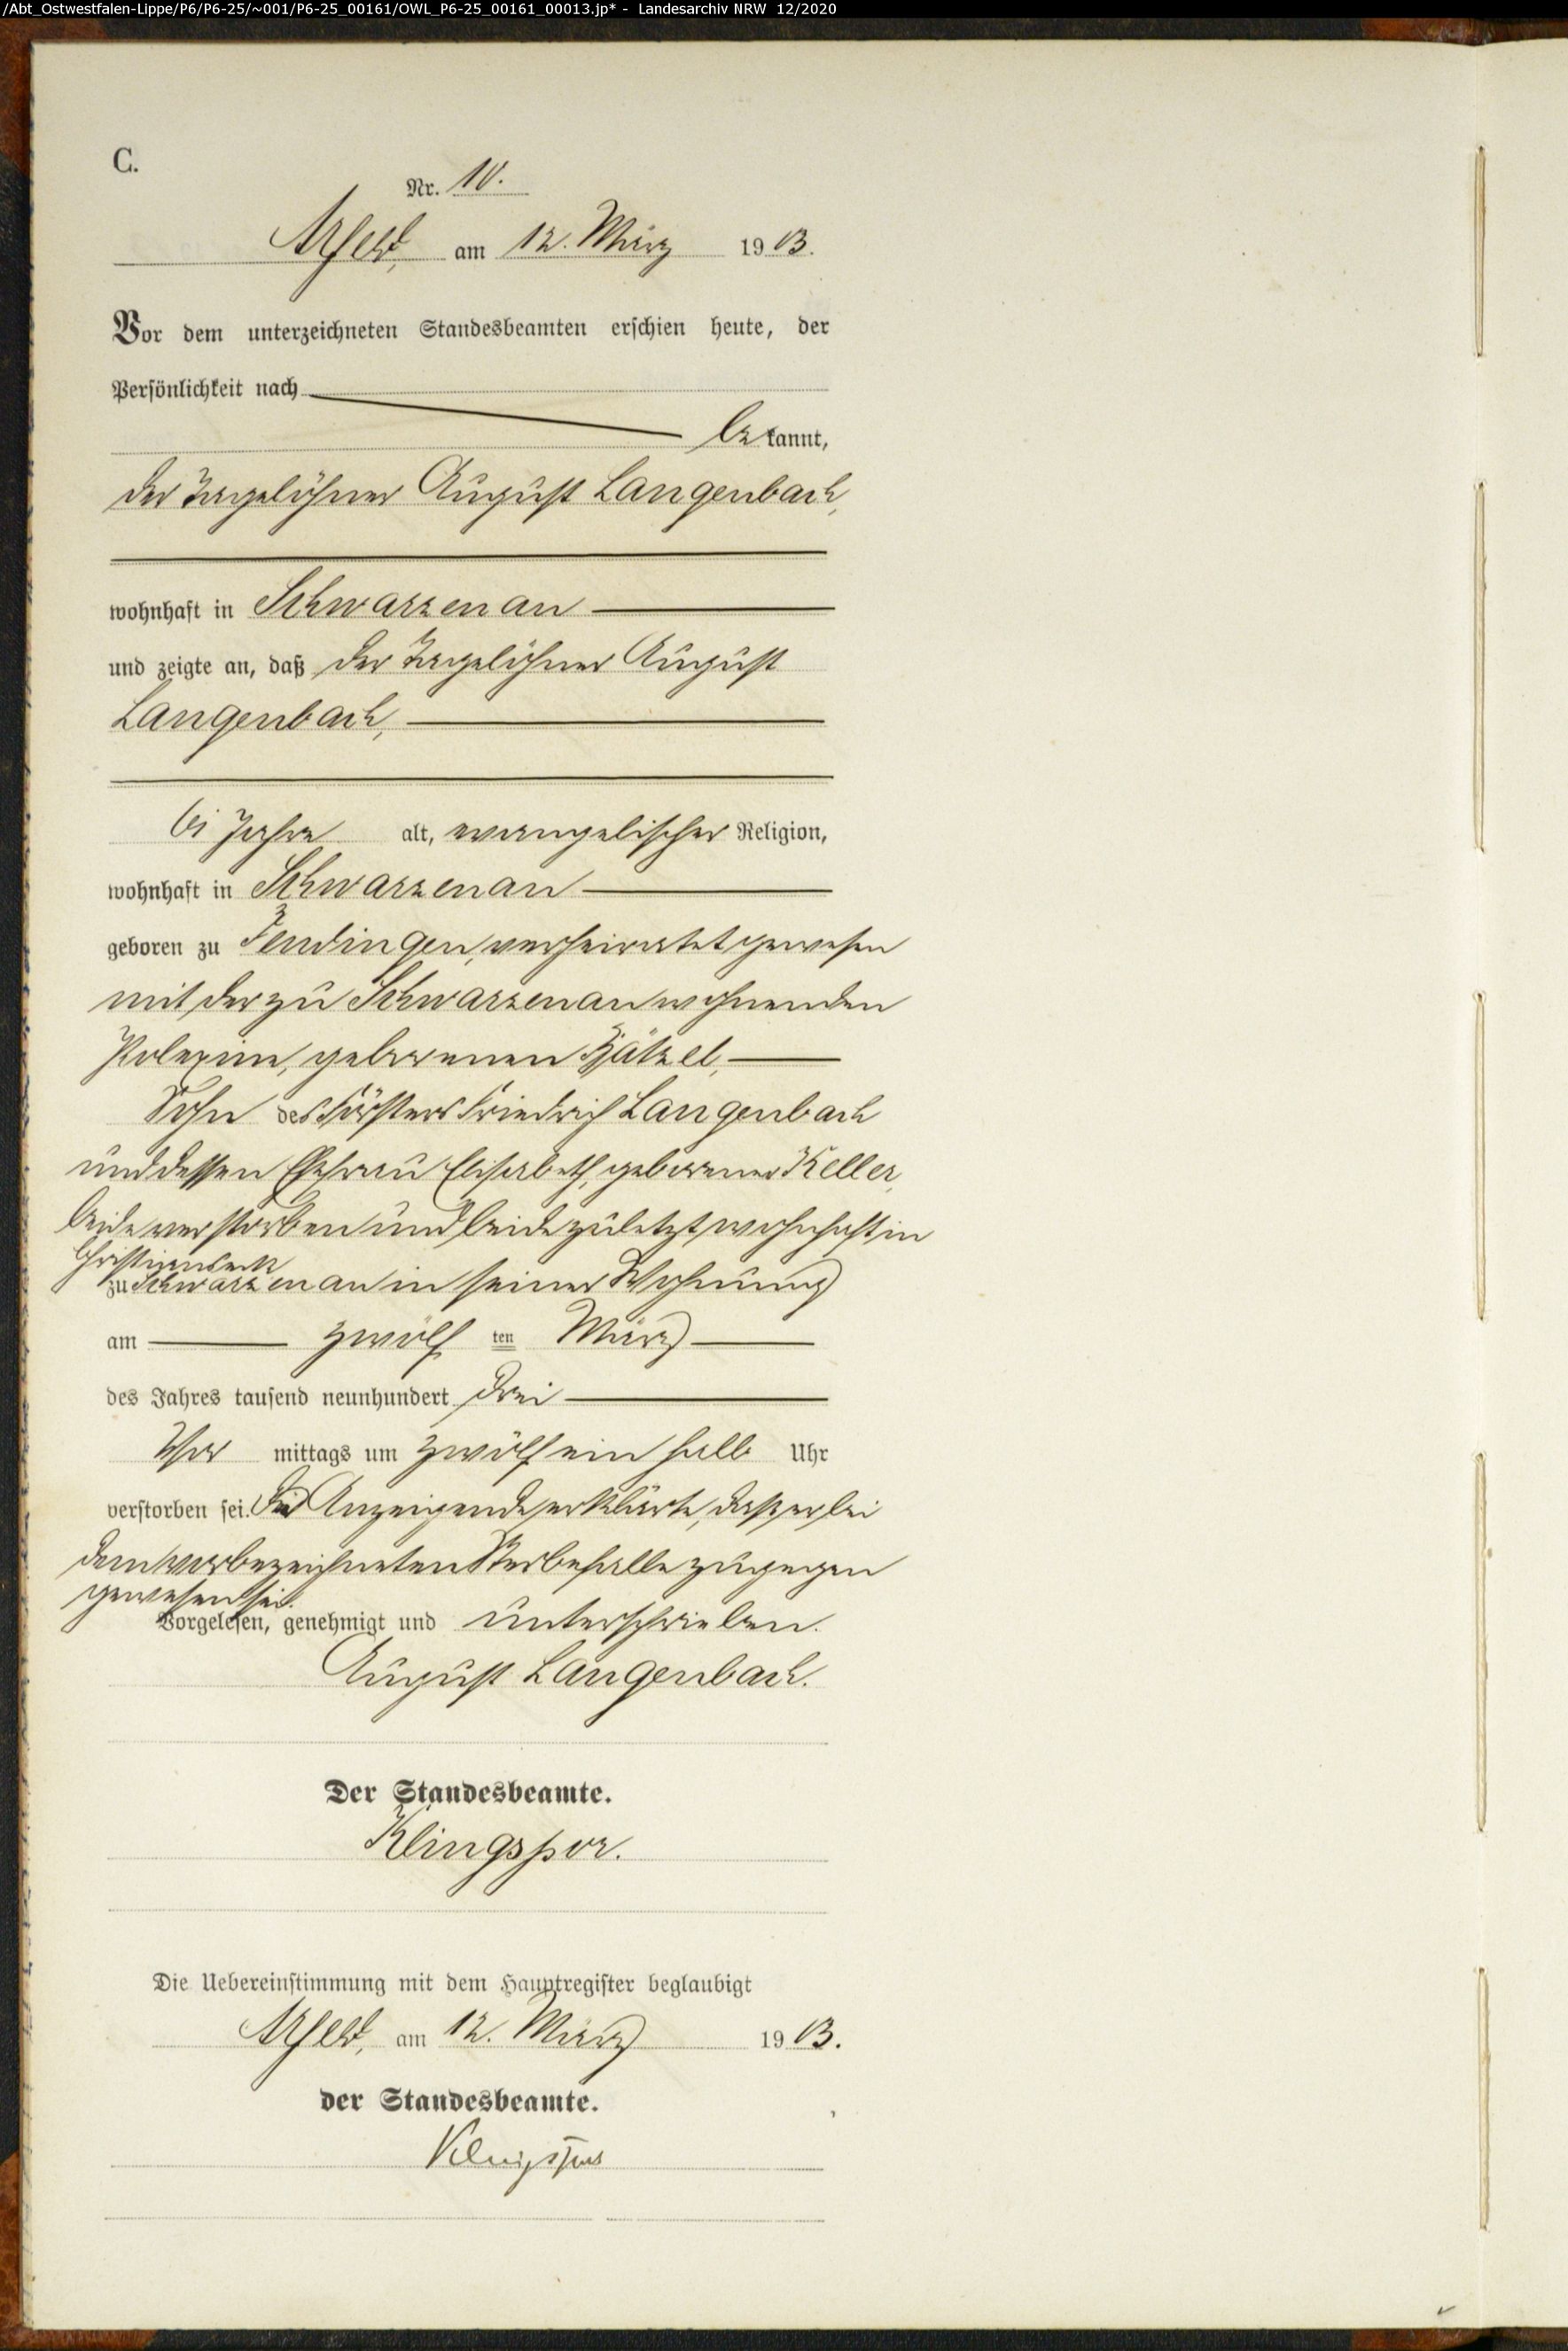 /Abt_Ostwestfalen-Lippe/P6/P6-25/~001/P6-25_00161/OWL_P6-25_00161_00013.jp* - Landesarchiv NRW 12/2020
C.
Nr. 10.
Arfeld, am 12. März 1903.
Vor dem unterzeichneten Standesbeamten erschien heute, der
Persönlichkeit nach
bekannt,
der Tagelöhner August Langenbach,
wohnhaft in Schwarzenau
und zeigte an, daß der Tagelöhner August
Langenbach,
61 Jahre alt, evangelischer Religion,
wohnhaft in Schwarzenau
geboren zu Fendingen, verheiratet gewesen
mit der zu Schwarzenau wohnenden
geborenen
Sohn des Försters Friedrich Langenbach
und dessen Ehefrau Elisabeth, geborener Keller,
beide verstorben und beide zuletzt wohnhaft in
Christianseck
zu Schwarzenau in seiner Wohnung
am zwölf ten März
des Jahres tausend neunhundert drei
Vor mittags um zwölf ein halb Uhr
verstorben sei. Anzeigende erklärte, daß er bei
dem vorbezeichneten Sterbefalle zugegen
gewesen sei.
Vorgelesen, genehmigt und unterschrieben.
August Langenbach.
Der Standesbeamte.
Klingspor.
Die Uebereinstimmung mit dem Hauptregister beglaubigt
Arfeld, am 12. März 1903.
der Standesbeamte.
Klingspor